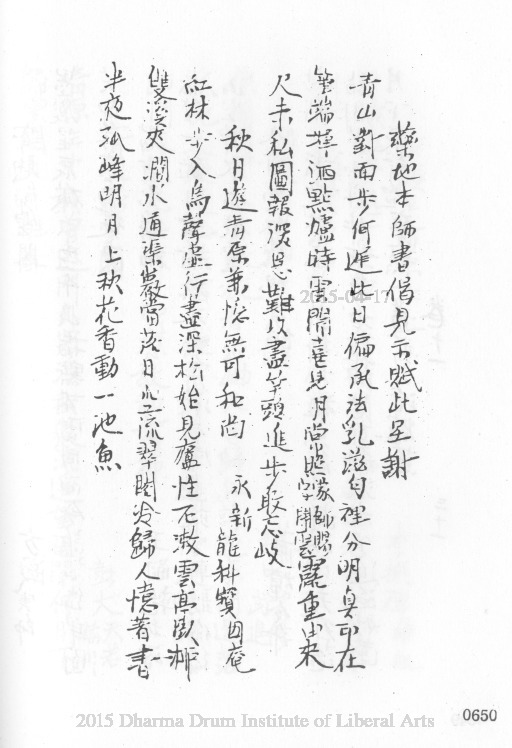 藥地本師書偈見示賦此呈謝
青山對面步何進此日偏承法乳滋句裡分明真印在
筆端揮洒點爐時雲開喜見月常照蒙師賜字學雲麗重由來
尺未私圖報深恩難以盡竿頭進步敢忘岐
秋月遊青原兼憶無可和尚 永新 龍科寶目庵
紅林步入鳥聲虛行盡深松始見廬性石漱雲亭臥
雙溪夾澗水通渠巖當落日心流翠閣冷歸人憶著書
半夜孤峰明月上秋花香動一池魚
2015-04-17
2015 Dharma Drum Institute of Liberal Arts
0650